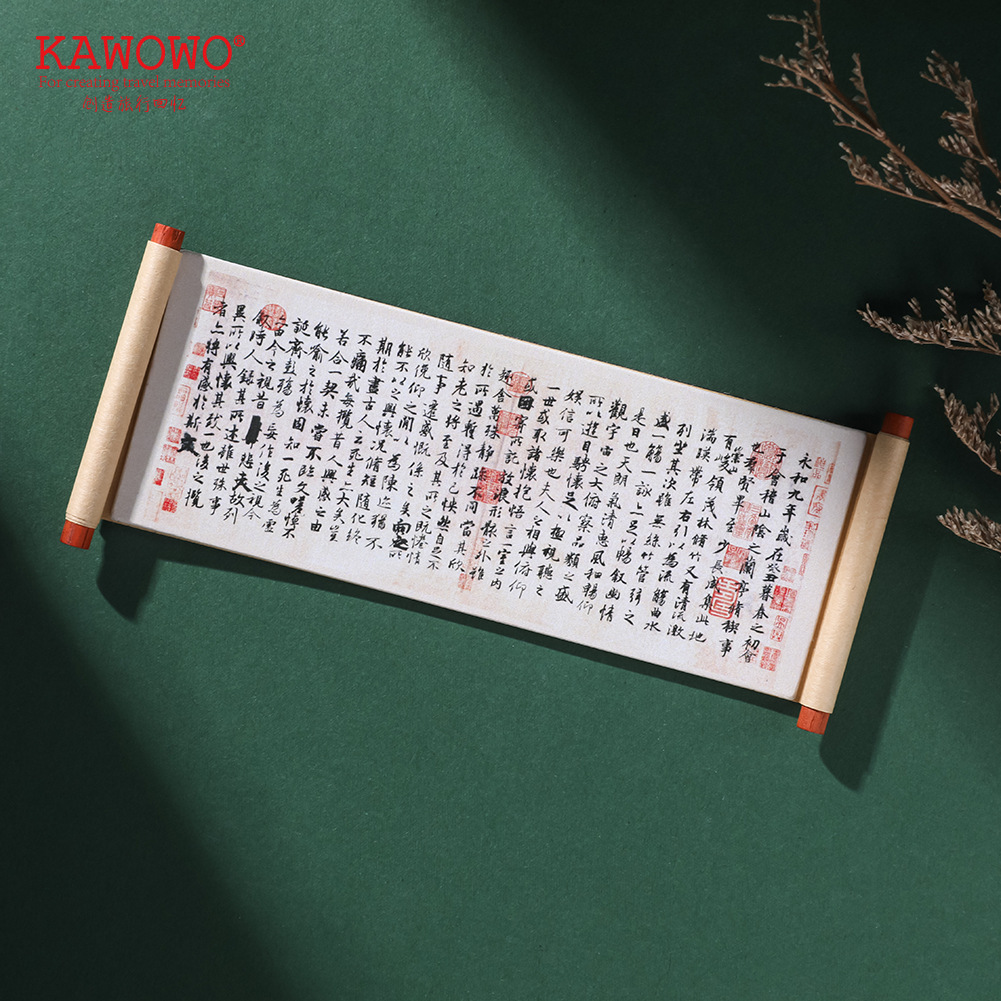 KAWOWO®
For creating travel memories
永和九年歲在癸丑暮春之初會
于會稽山陰之蘭亭脩稧事
也羣賢畢至少長咸集此地
有崇山峻領茂林脩竹又有清流激
湍暎帶左右引以為流觴曲水
列坐其次雖無絲竹管弦之
盛一觴一詠上足以暢敘幽情
是日也天朗氣清惠風和暢仰
觀宇宙之大俯察品類之盛
所以遊目騁懷足以極視聽之
娛信可樂也夫人之相與俯仰
一世或取諸懷抱悟言一室之內
或因寄所託放浪形骸之外雖
趣舍萬殊靜躁不同當其欣
於所遇暫得於己怏然自足不
知老之將至及其所之既惓情
隨事遷感慨係之矣向之所
欣俛仰之閒以為陳迹猶不
能不以之興懷況脩短隨化終
期於盡古人云死生亦大矣豈
不痛哉每攬昔人興感之由
若合一契未嘗不臨文嗟悼不
能喻之於懷固知一死生為虛
誕齊彭殤為妄作後之視今
亦由今之視昔悲夫故列
敘時人錄其所述雖世殊事
異所以興懷其致一也後之攬
者亦將有感於斯文